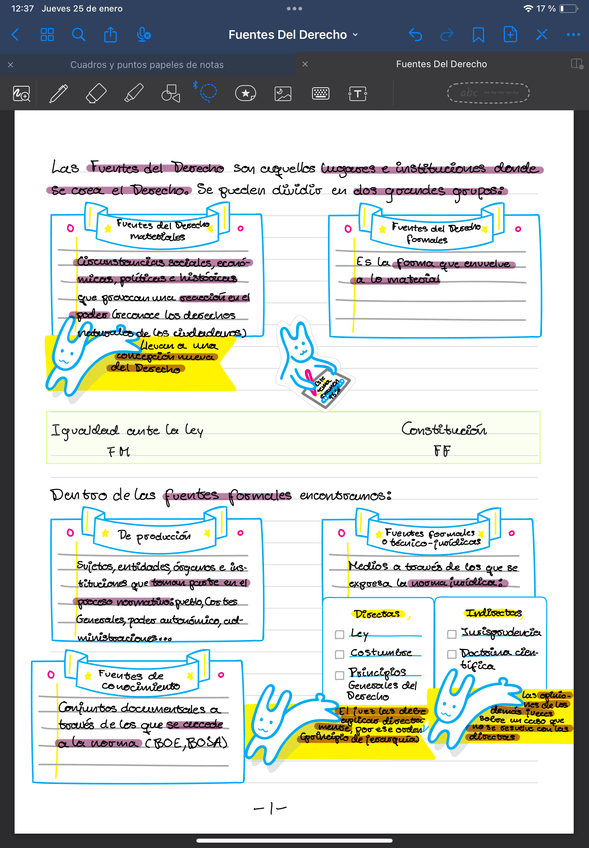 12:37 Jueves 25 de enero
17 %
Fuentes Del Derecho
Cuadros y puntos papeles de notas
Fuentes Del Derecho
abc
Las Fuentes del Derecho son aquellos lugares e instituciones donde
se crea el Derecho. Se pueden dividir en dos grandes grupos:
Fuentes del Derecho
materiales
Circunstancias sociales, econó-
micas, políticas e históricas
que provocan una reacción en el
poder (reconoce los derechos
naturales de los ciudadanos)
Llevan a una
concepción nueva
del Derecho
Fuentes del Derecho
formales
Es la forma que envuelve
a lo material
Igualdad ante la ley
FM
Constitución
FF
Dentro de las fuentes formales encontramos:
De producción
Sujetos, entidades, órganos e ins-
tituciones que toman parte en el
proceso normativo: pueblo, Cortes
Generales, poder autonómico, ad-
ministraciones...
Fuentes formales
o técnico-jurídicas
Medios a través de los que se
expresa la norma jurídica:
Directas
Ley
Costumbre
Principios
Generales del
Derecho
Indirectas
Jurisprudencia
Doctrina cien-
tífica
Fuentes de
conocimiento
Conjuntos documentales a
través de los que se accede
a la norma (BOE, BOSA)
El juez las debe
aplicar directa-
mente, por ese orden
(principio de jerarquía)
las opinio-
nes de los
demás jueces
sobre un caso que
no se resuelve con las
directas
-1-